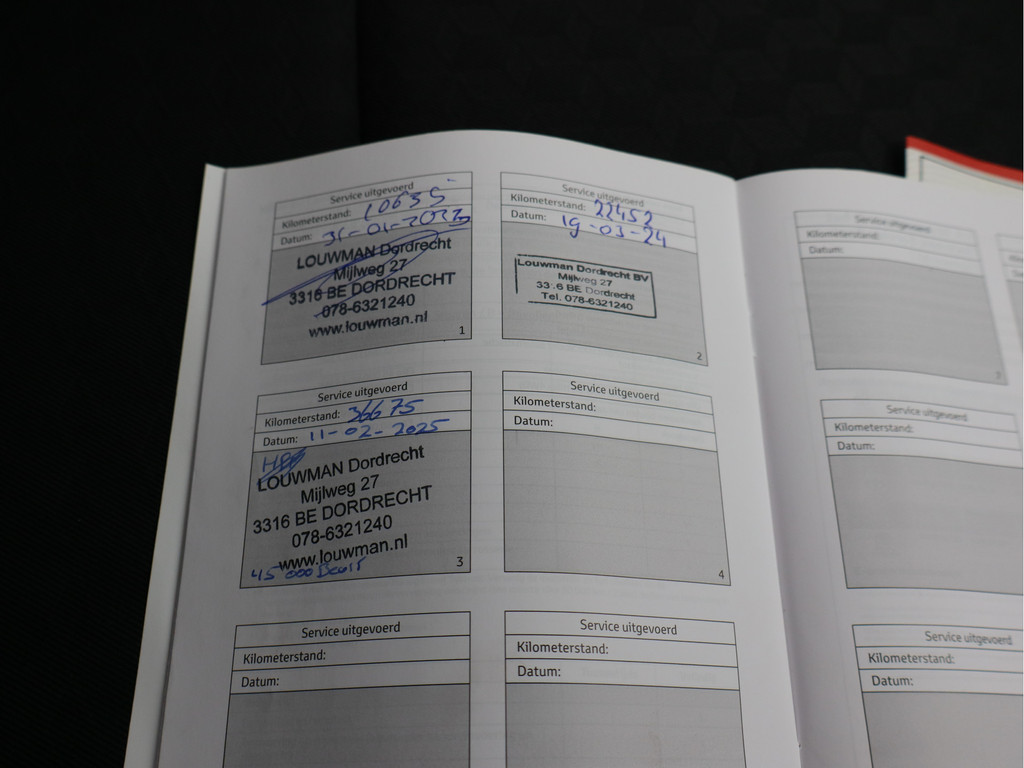 Service uitgevoerd
Kilometerstand: 10635
Datum: 31-01-2023
LOUWMAN Dordrecht
Mijlweg 27
3316 BE DORDRECHT
078-6321240
www.louwman.nl
1
Service uitgevoerd
Kilometerstand: 22452
Datum: 19-03-24
Louwman Dordrecht BV
Mijlweg 27
3316 BE Dordrecht
Tel. 078-6321240
2
Service uitgevoerd
Kilometerstand: 36675
Datum: 11-02-2025
LOUWMAN Dordrecht
Mijlweg 27
3316 BE DORDRECHT
078-6321240
www.louwman.nl
45 000 Beurt
3
Service uitgevoerd
Kilometerstand:
Datum:
4
Service uitgevoerd
Kilometerstand:
Datum:
Service uitgevoerd
Kilometerstand:
Datum:
Service uitgevoerd
Kilometerstand:
Datum:
7
Service uitgevoerd
Kilometerstand:
Datum:
Service uitgevoerd
Kilometerstand:
Datum: